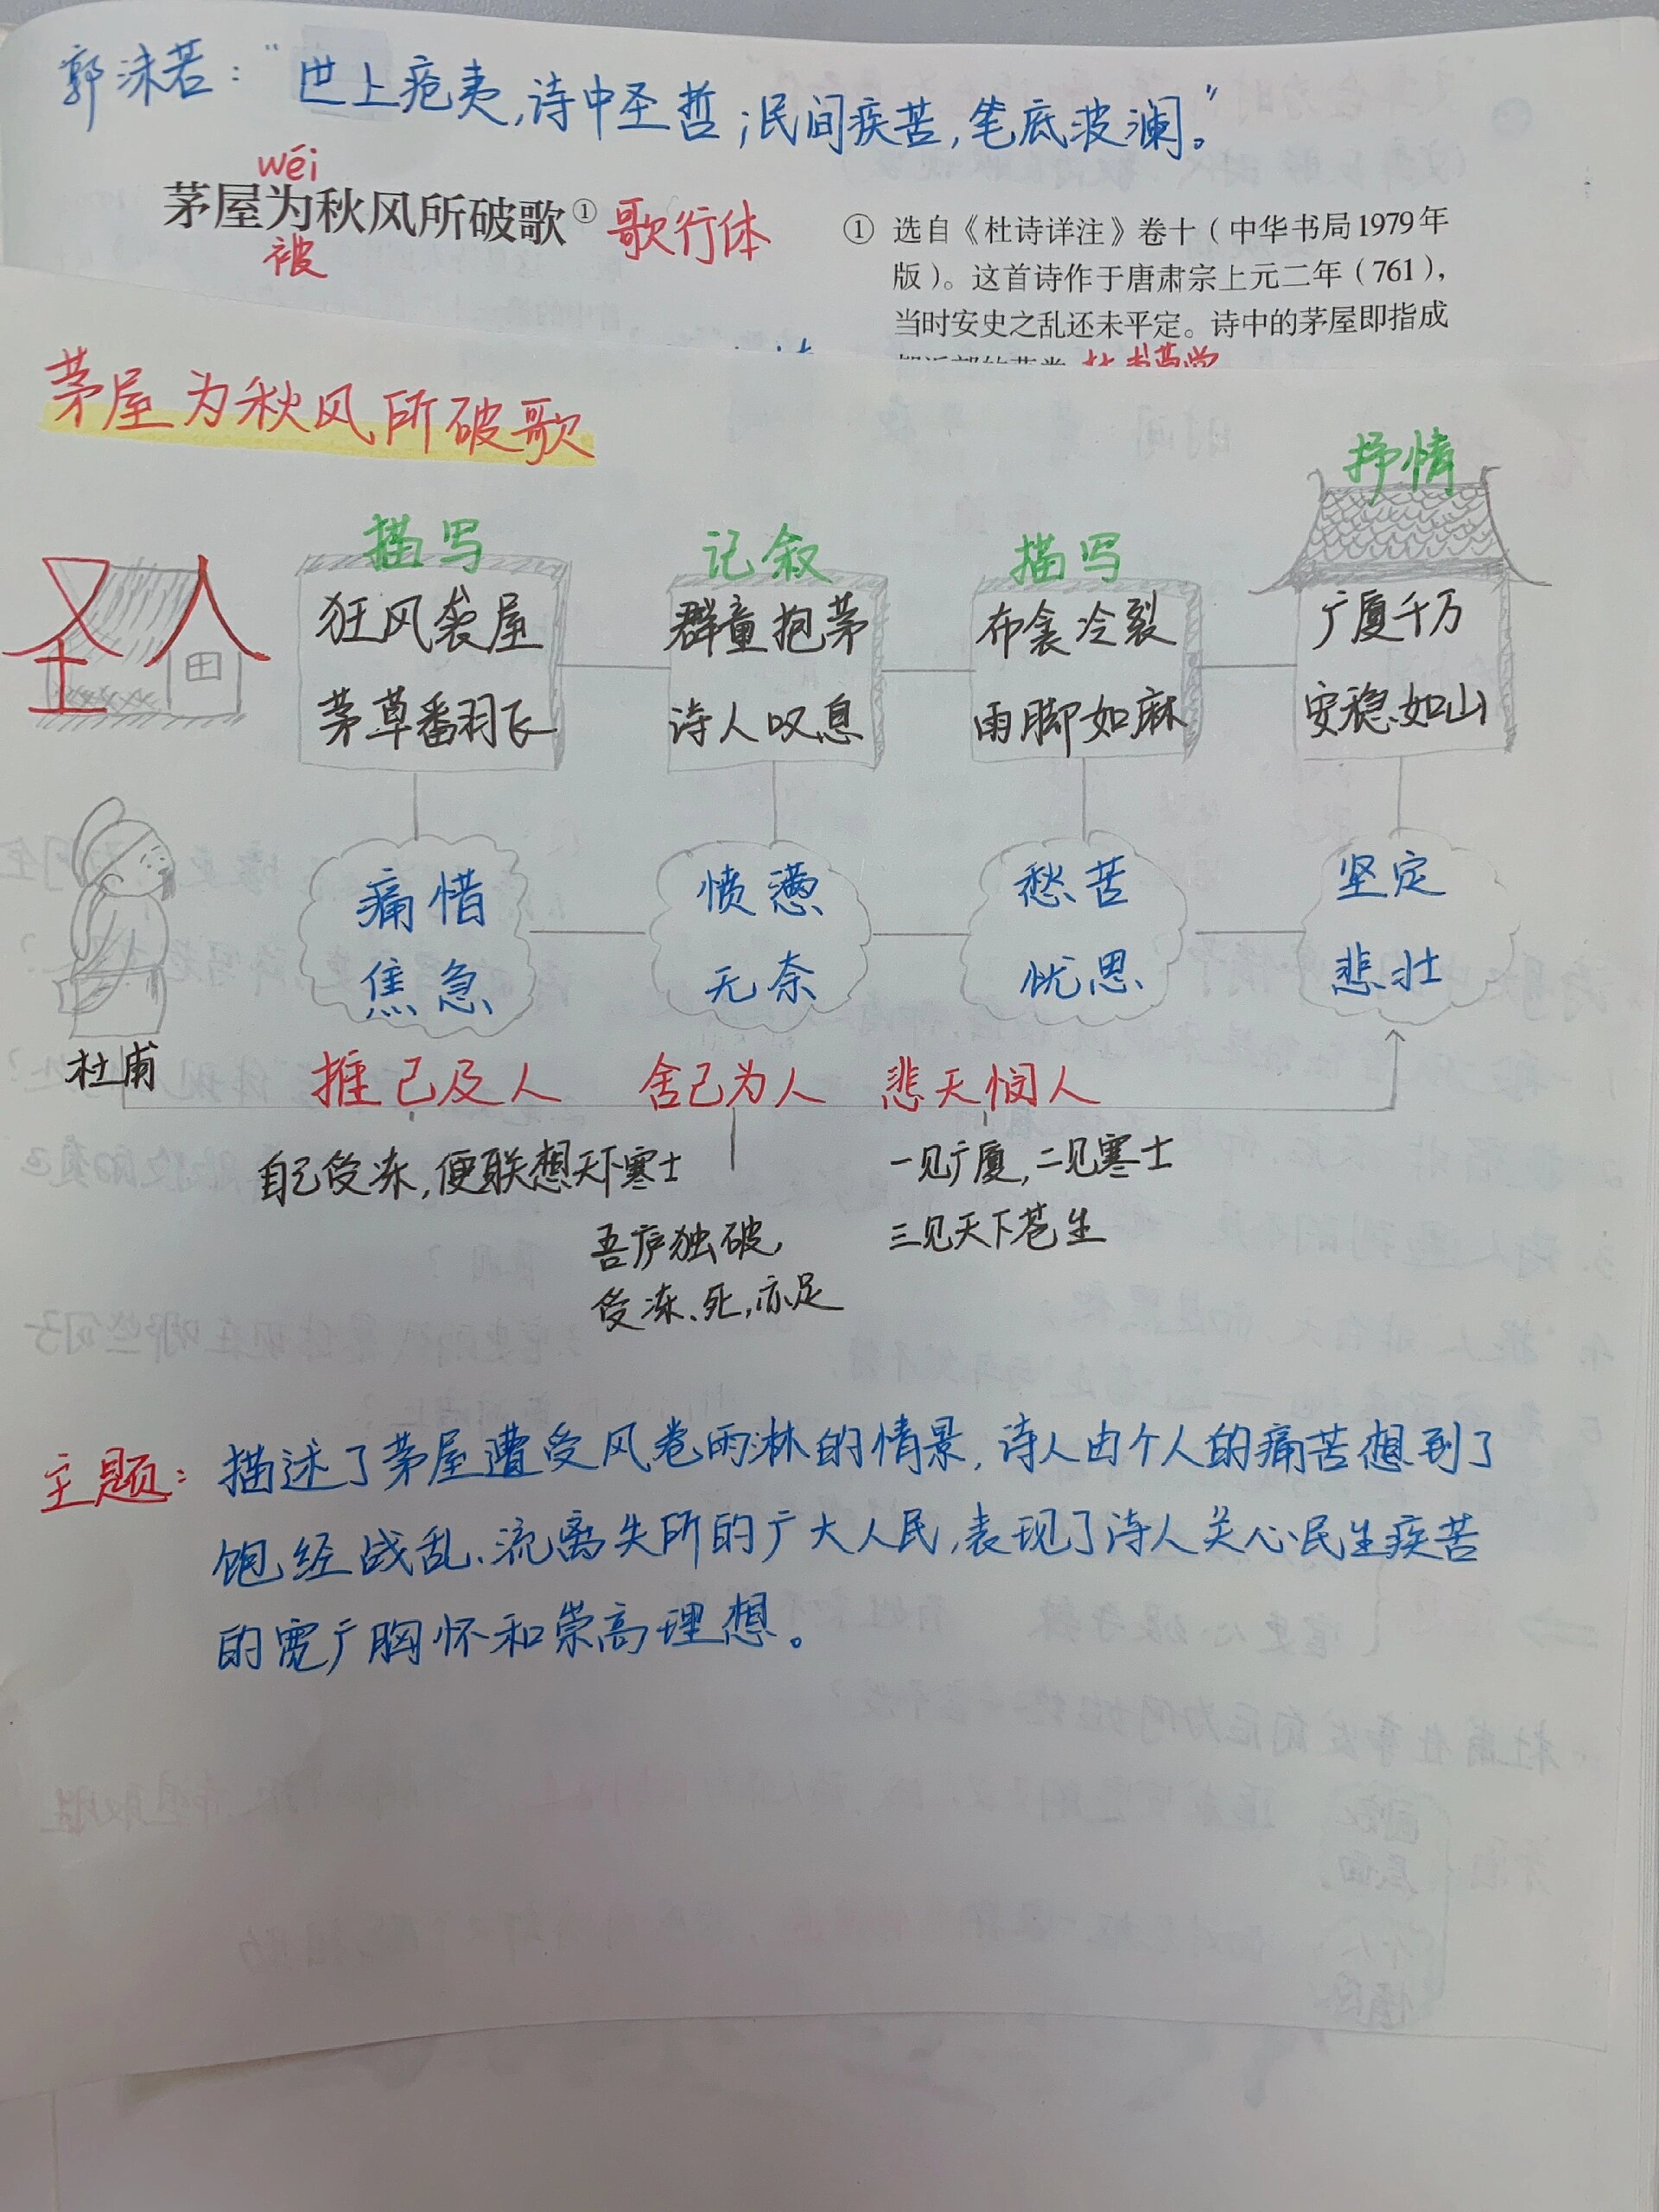 郭沫若：“世上疮夷，诗中圣哲；民间疾苦，笔底波澜。”
wéi
茅屋为秋风所破歌① 歌行体
被
① 选自《杜诗详注》卷十（中华书局1979年
版）。这首诗作于唐肃宗上元二年（761），
当时安史之乱还未平定。诗中的茅屋即指成
茅屋为秋风所破歌
描写 记叙 描写 抒情
圣人
狂风袭屋 群童抱茅 布衾冷裂 广厦千万
茅草翻飞 诗人叹息 雨脚如麻 安稳如山
痛惜 愤懑 愁苦 坚定
焦急 无奈 忧思 悲壮
杜甫 推己及人 舍己为人 悲天悯人
自己受冻，便联想天下寒士 一见广厦，二见寒士
吾庐独破， 三见天下苍生
受冻、死，亦足
主题：描述了茅屋遭受风卷雨淋的情景，诗人由个人的痛苦想到了
饱经战乱、流离失所的广大人民，表现了诗人关心民生疾苦
的宽广胸怀和崇高理想。